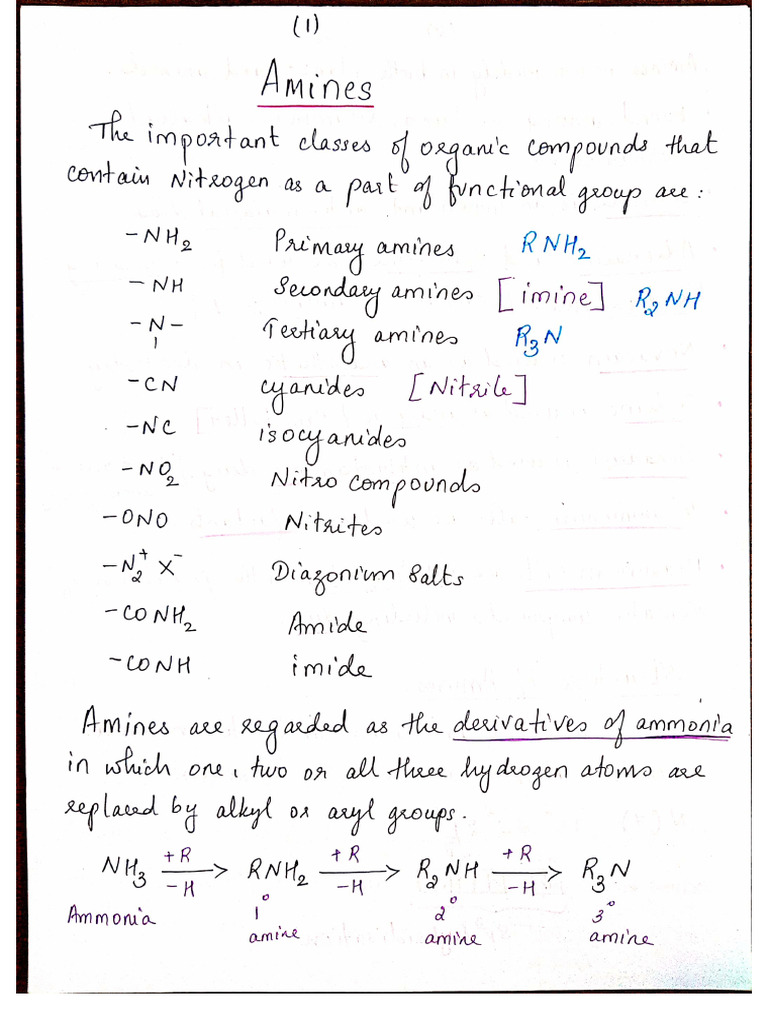 (1)
Amines
The important classes of organic compounds that
contain Nitrogen as a part of functional group are:
-NH₂ Primary amines RNH₂
-NH Secondary amines [imine] R₂NH
-N- Tertiary amines R₃N
-CN cyanides [Nitrile]
-NC isocyanides
-NO₂ Nitro compounds
-ONO Nitrites
-N₂⁺ X⁻ Diazonium Salts
-CONH₂ Amide
-CONH imide
Amines are regarded as the derivatives of ammonia
in which one, two or all three hydrogen atoms are
replaced by alkyl or aryl groups.
+R +R +R
NH₃ → RNH₂ → R₂NH → R₃N
-H -H -H
Ammonia 1° 2° 3°
amine amine amine